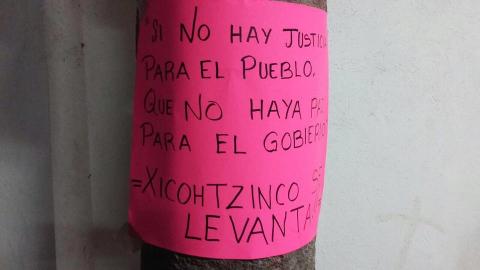 "SI NO HAY JUSTICIA
PARA EL PUEBLO.
QUE NO HAYA PAZ
PARA EL GOBIERNO"
=XICOHTZINCO SE
LEVANTA!=